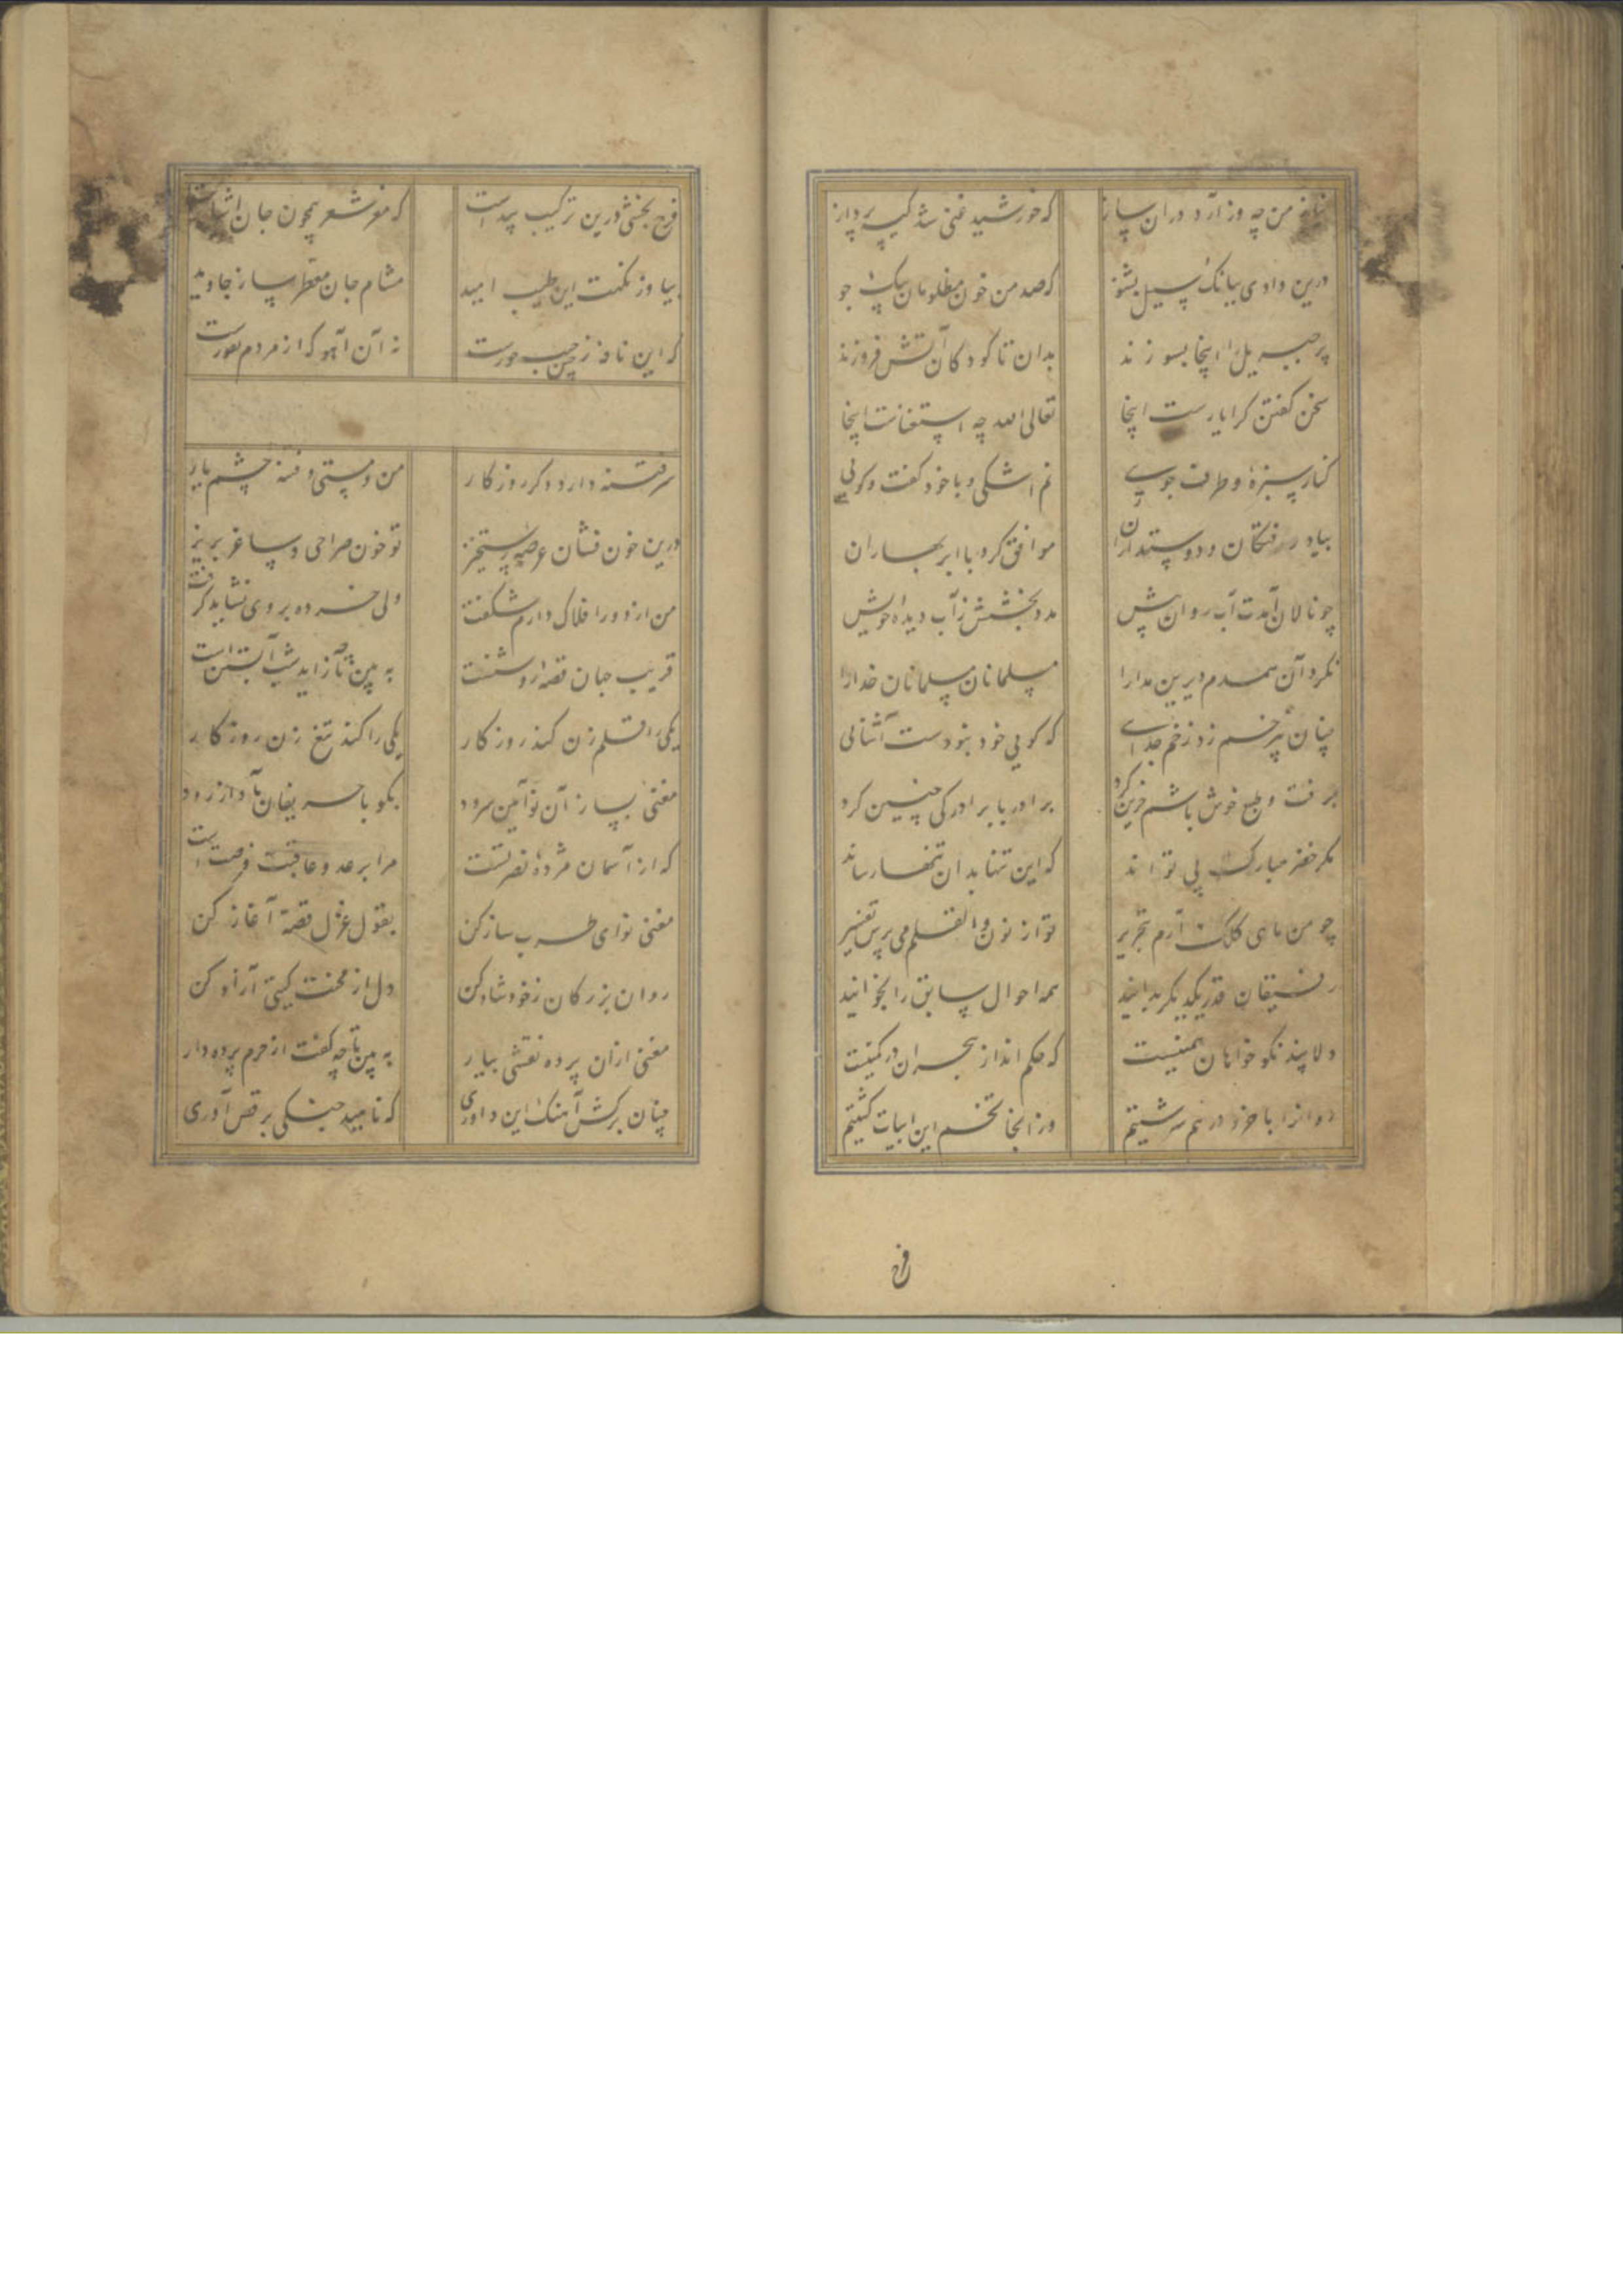 نیاز من چه وزن آرد دران ساز که خورشید غنی شد کیسه پرداز
درین وادی ببانک سیل بشنو که صد من خون مظلومان بیک جو
پر جبریل را اینجا بسوزند بدان تا کودکان آتش فروزند
سخن کفتن کرا یارست اینجا تعالی الله چه استغناست اینجا
کنار سبزهٔ و طرف جویی نم اشکی و با خود کفت و کویی
بیاد رفتکان و دوستداران موافق کرد با ابر بهاران
چو نالان آمدت آب روان پیش مدد بخشش ز آب دیدهٔ خویش
نکرد آن همدم دیرین مدارا مسلمانان مسلمانان خدا را
چنان بیرحم زد زخم جدایی که کویی خود نبودست آشنایی
برفت و طبع خوش باشم حزین کرد برادر با برادر کی چنین کرد
مکر خضر مبارک پی تواند که این تنها بدان تنها رساند
چو من ماهی کلک آرم بتحریر تو از نون والقلم می پرس تفسیر
رفیقان قدر یکدیکر بدانید همه احوال سابق را بخوانید
دلا پند نکو خواهان همینست که حکم انداز هجران در کمینست
روان را با خرد در هم سرشتیم وز انجا تخم این ابیات کشتیم
فرح
فرح بخشی درین ترکیب پیداست که مغز شعر همچون جان
بیا وز نکهت این طیب امید مشام جان معطر ساز جاوید
که این نافه ز چین جیب حورست نه آن آهو که از مردم نفورست
سر فتنه دارد دکر روزکار من و مستی و فتنه چشم یار
درین خون فشان عرصهٔ رستخیز تو خون صراحی و ساغر بریز
من از دور افلاک دارم شکفت ولی خرده بر وی نشاید کرفت
فریب جهان قصهٔ روشنست به بین تا چه زاید شب آبستن است
یکی را قلم زن کند روزکار یکی را کند تیغ زن روزکار
مغنی بساز آن نوآیین سرود بکو با حریفان بآواز رود
که از آسمان مژدهٔ نصرتست مرا بر عدو عاقبت فرصت است
مغنی نوای طرب ساز کن بقول غزل قصه آغاز کن
روان بزرکان ز خود شاد کن دل از محنت کیتی آزاد کن
مغنی ازان پرده نقشی بیار به بین تا چه کفت از حرم پرده دار
چنان برکش آهنک این داوری که ناهید چنکی برقص آوری